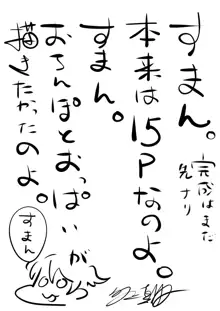 すまん。
完成はまだ
先ナリ
本来は15Pなのよ。
すまん。
おちんぽとおっぱいが
描きたかったのよ。
すまん